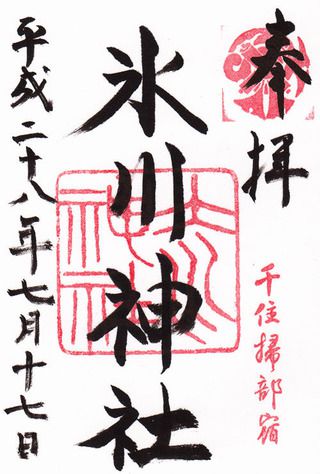 奉拝
千住掃部宿
氷川神社
平成二十八年七月十七日